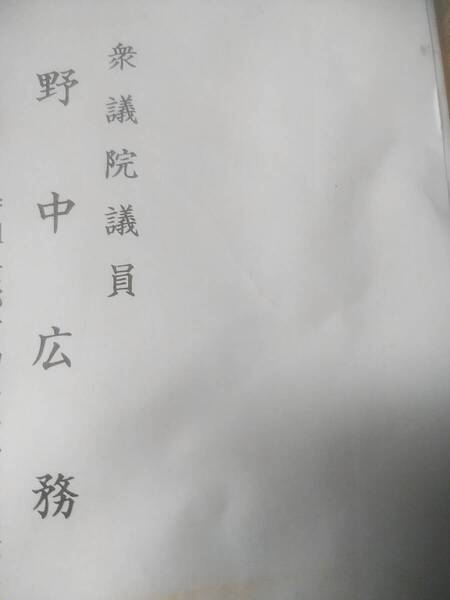 衆議院議員
野中広務